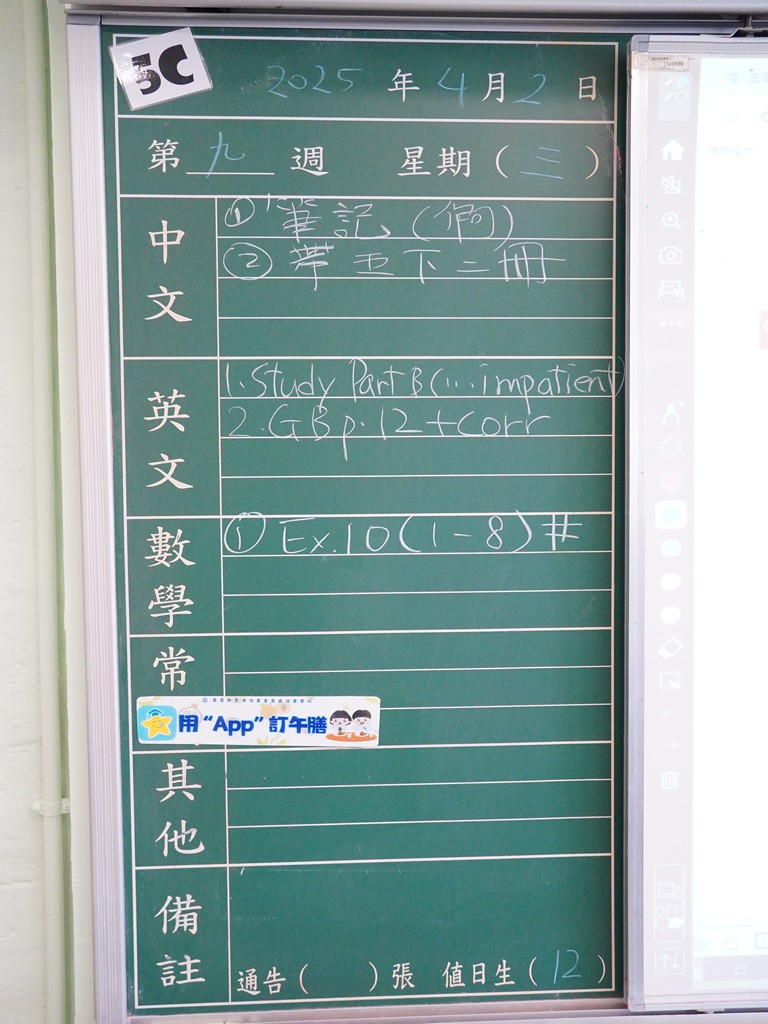 5C
2025 年 4 月 2 日
第 九 週 星期 ( 三 )
中文
① 筆記 (
② 帶 五下二冊
英文
1. Study Part B (... impatient)
2. GB p. 12 + Corr
數學
① Ex. 10 (1-8) #
常
用 “App” 訂午膳
其他
備註
通告 ( ) 張 值日生 ( 12 )
OFF